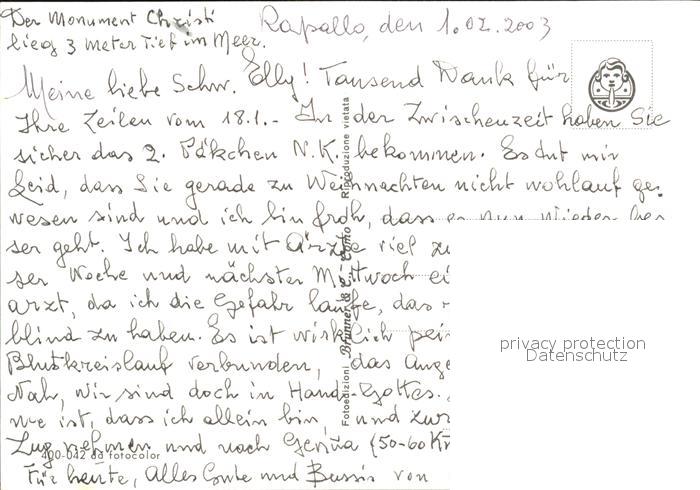 Der Monument Christi
lieg 3 meter Tief im Meer.
Rapallo, den 1.02.2003
Meine liebe Schw. Elly! Tausend Dank für
Ihre Zeilen vom 18.1.- In der Zwischenzeit haben Sie
sicher das 2. Päkchen N.K. bekommen. Es dut mir
Leid, dass Sie gerade zu Weihnachten nicht wohlauf ge.
wesen sind und ich bin froh, dass es nun wieder bes
ser geht. Ich habe mit Ärzte viel zu
ser Woche und nächster Mittwoch ei
arzt, da ich die Gefahr laufe, das
blind zu haben. Es ist wirklich pein
Blutkreislauf verbunden, das Auge
Nah, wir sind doch in Hands-Gottes.
me ist, dass ich allein bin, und zur
Zug nehmen und nach Genua (50-60 Km
Für heute, Alles Gute und Bussis von
Fotoedizioni Brunner & C. - Como Riproduzione vietata
400-042 da fotocolor
privacy protection
Datenschutz